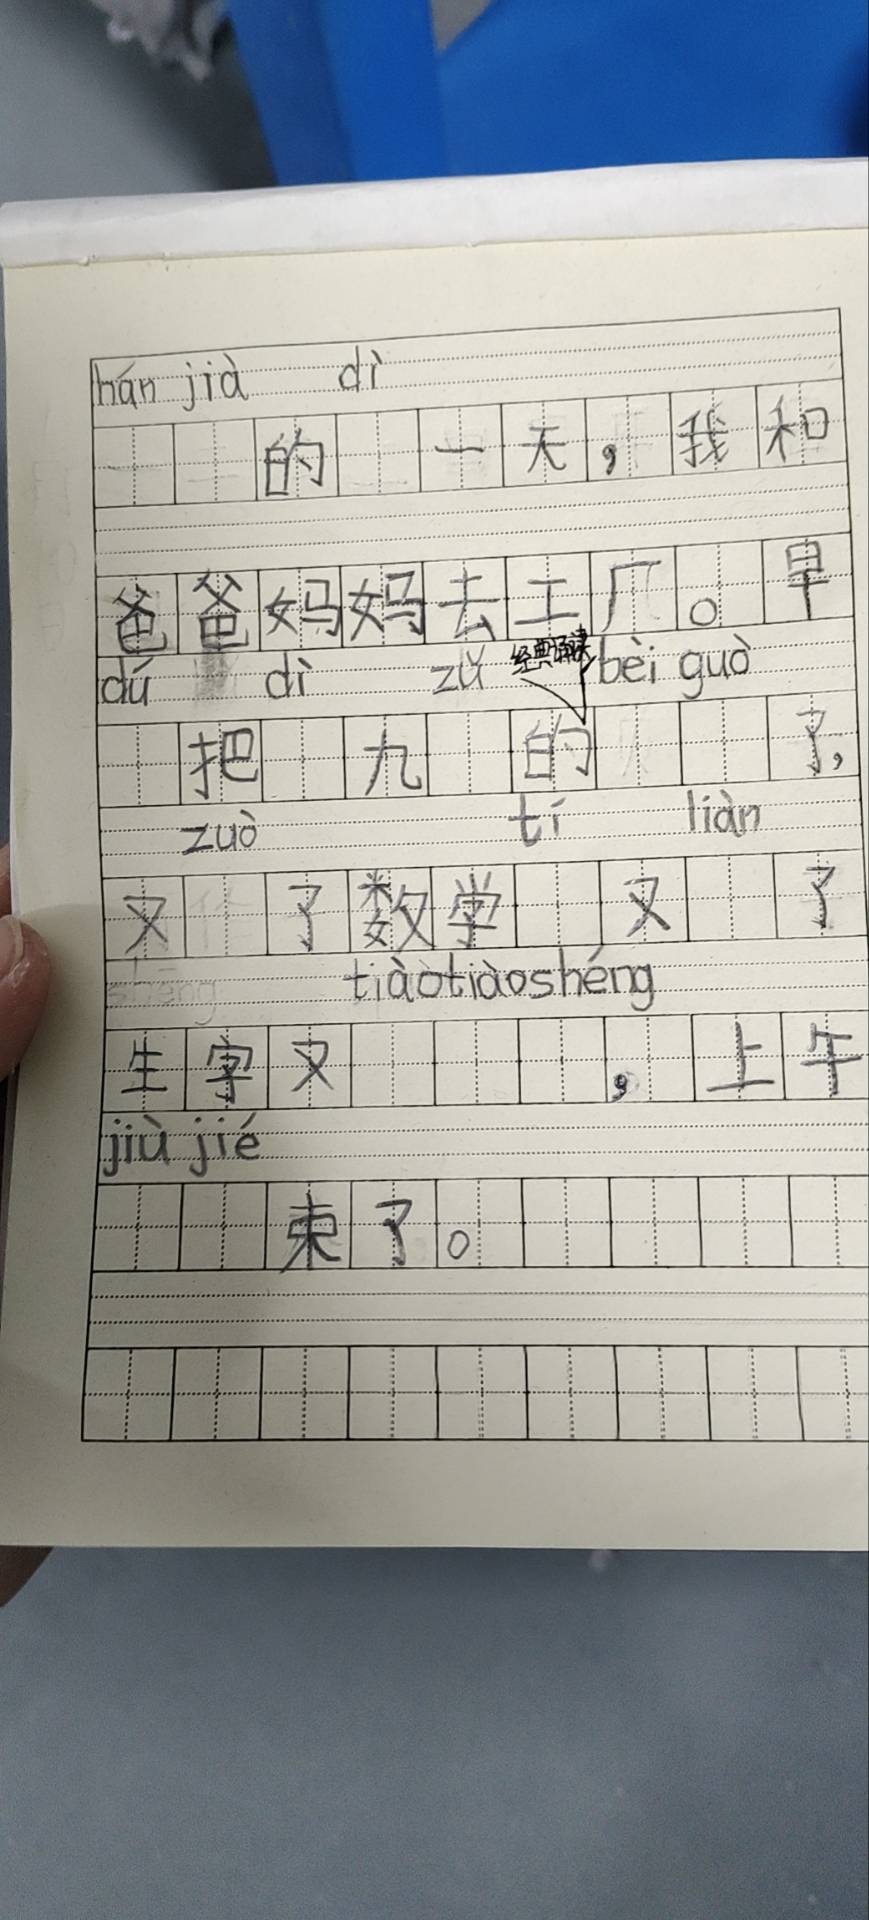 hán jià dì
的 一天，我和
爸爸妈妈去工厂。早
dú dì zǔ 经典诵读 bèi guò
把 九 的 了，
zuò tí liàn
又 了数学 又 了
shēng tiàotiàoshéng
生字又 ，上午
jiù jié
束了。